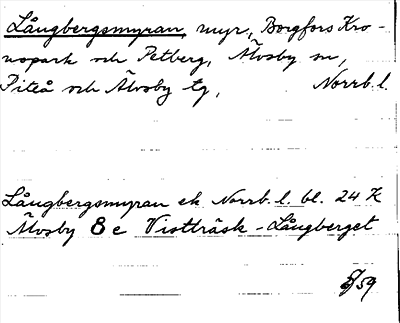 Långbergsmyran, myr, Borgfors Kro-
nopark och Petberg, Älvsby sn,
Piteå och Älvsby tg, Norrb. l.
Långbergsmyran ek Norrb. l. bl. 24 K
Älvsby 8 e Vistträsk - Långberget
/59